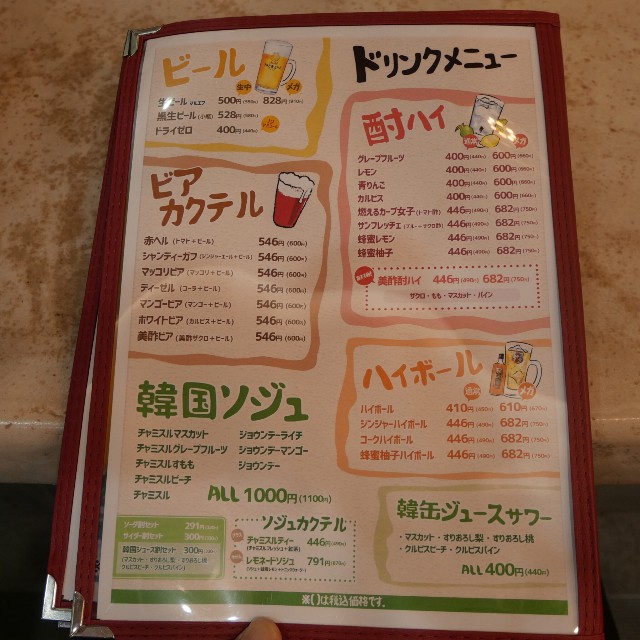 ドリンクメニュー
ビール
生中 メガ
500円(550円) 828円(910円)
黒生ビール(小瓶) 528円(580円)
ドライゼロ 400円(440円)
ビアカクテル
赤ヘル(トマト+ビール) 546円(600円)
シャンディーガフ(ジンジャーエール+ビール) 546円(600円)
マッコリビア(マッコリ+ビール) 546円(600円)
ディーゼル(コーラ+ビール) 546円(600円)
マンゴービア(マンゴー+ビール) 546円(600円)
ホワイトビア(カルピス+ビール) 546円(600円)
美酢ビア(美酢ザクロ+ビール) 546円(600円)
韓国ソジュ
チャミスルマスカット ジョウンデーライチ
チャミスルグレープフルーツ ジョウンデーマンゴー
チャミスルすもも ジョウンデー
チャミスルピーチ
チャミスル ALL 1000円(1100円)
ソーダ割セット 291円
サイダー割セット 300円
韓国ジュース割セット 300円
(マスカット・すりおろし梨・すりおろし桃
クルピスピーチ・クルピスパイン)
ソジュカクテル
チャミスルティー 446円(490円)
(チャミスルフレッシュ+紅茶)
レモネードソジュ 791円(870円)
酎ハイ
通常 メガ
グレープフルーツ 400円(440円) 600円(660円)
レモン 400円(440円) 600円(660円)
青りんご 400円(440円) 600円(660円)
カルピス 400円(440円) 600円(660円)
燃えるカープ女子(トマト酢) 446円(490円) 682円(750円)
サンフレッチェ(ブルー+ザクロ酢) 446円(490円) 682円(750円)
蜂蜜レモン 446円(490円) 682円(750円)
蜂蜜柚子 446円(490円) 682円(750円)
美酢酎ハイ 446円(490円) 682円(750円)
ザクロ・もも・マスカット・パイン
ハイボール
通常 メガ
ハイボール 410円(450円) 610円(670円)
ジンジャーハイボール 446円(490円) 682円(750円)
コークハイボール 446円(490円) 682円(750円)
蜂蜜柚子ハイボール 446円(490円) 682円(750円)
韓缶ジュースサワー
・マスカット・すりおろし梨・すりおろし桃
・クルピスピーチ・クルピスパイン
ALL 400円(440円)
※()は税込価格です。